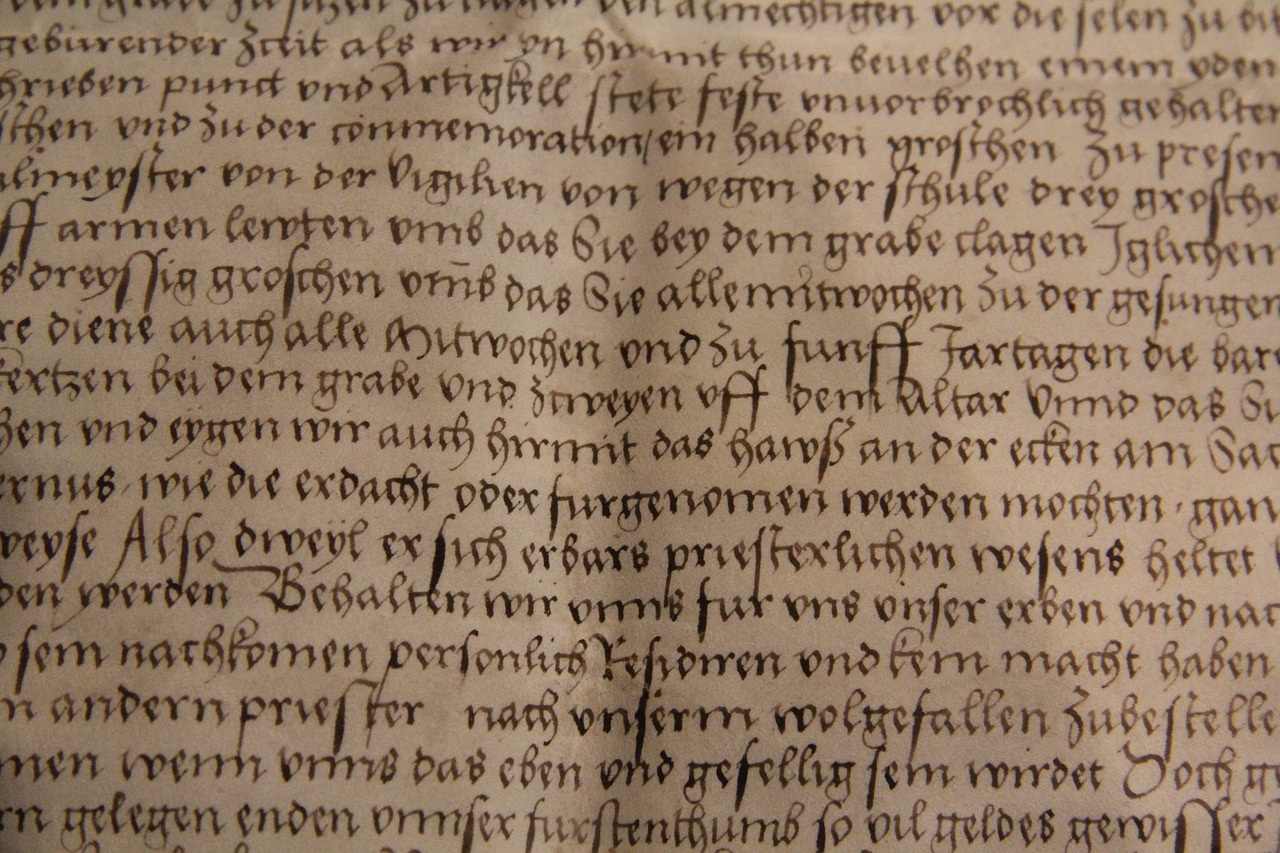 grabe zu sitzen zu den almechtigen vor die selen zu
geburender zceit als wir yn hirmit thun beuelhen einem yden
hrieben punct vnd Artigkell stete feste vnuorbrochlich gehalten
schen vnd zu der commemoration/ ein halben groschen zu presen
ulmeyster von der Vigilien von wegen der schule drey grosche
ff armen lewten vmb das Sie bey dem grabe clagen Iglichem
s dreyssig groschen vm̄b das Sie alle mitwochen zu der gesungen
re diene auch alle Mitwochen vnd zu funff Jartagen die bar
kertzen bei dem grabe vnd zcweyen vff dem Altar Vnnd das Si
hen vnd eygen wir auch hirmit das hawß an der ecken am Sac
ernus· wie die erdacht oder furgenomen werden mochten · gan
weyse Also dweyl er sich erbars priesterlichen wesens heltet
den werden Behalten wir vnns fur vns vnser erben vnd nac
sein nachkomen personlich Residiren vnd kein macht haben
n andern priester nach vnserm wolgefallen zubestelle
men wenn vnns das eben vnd gefellig sein wirdet Doch ge
rn gelegen enden vnnser furstenthumb so vil geldes gewisser